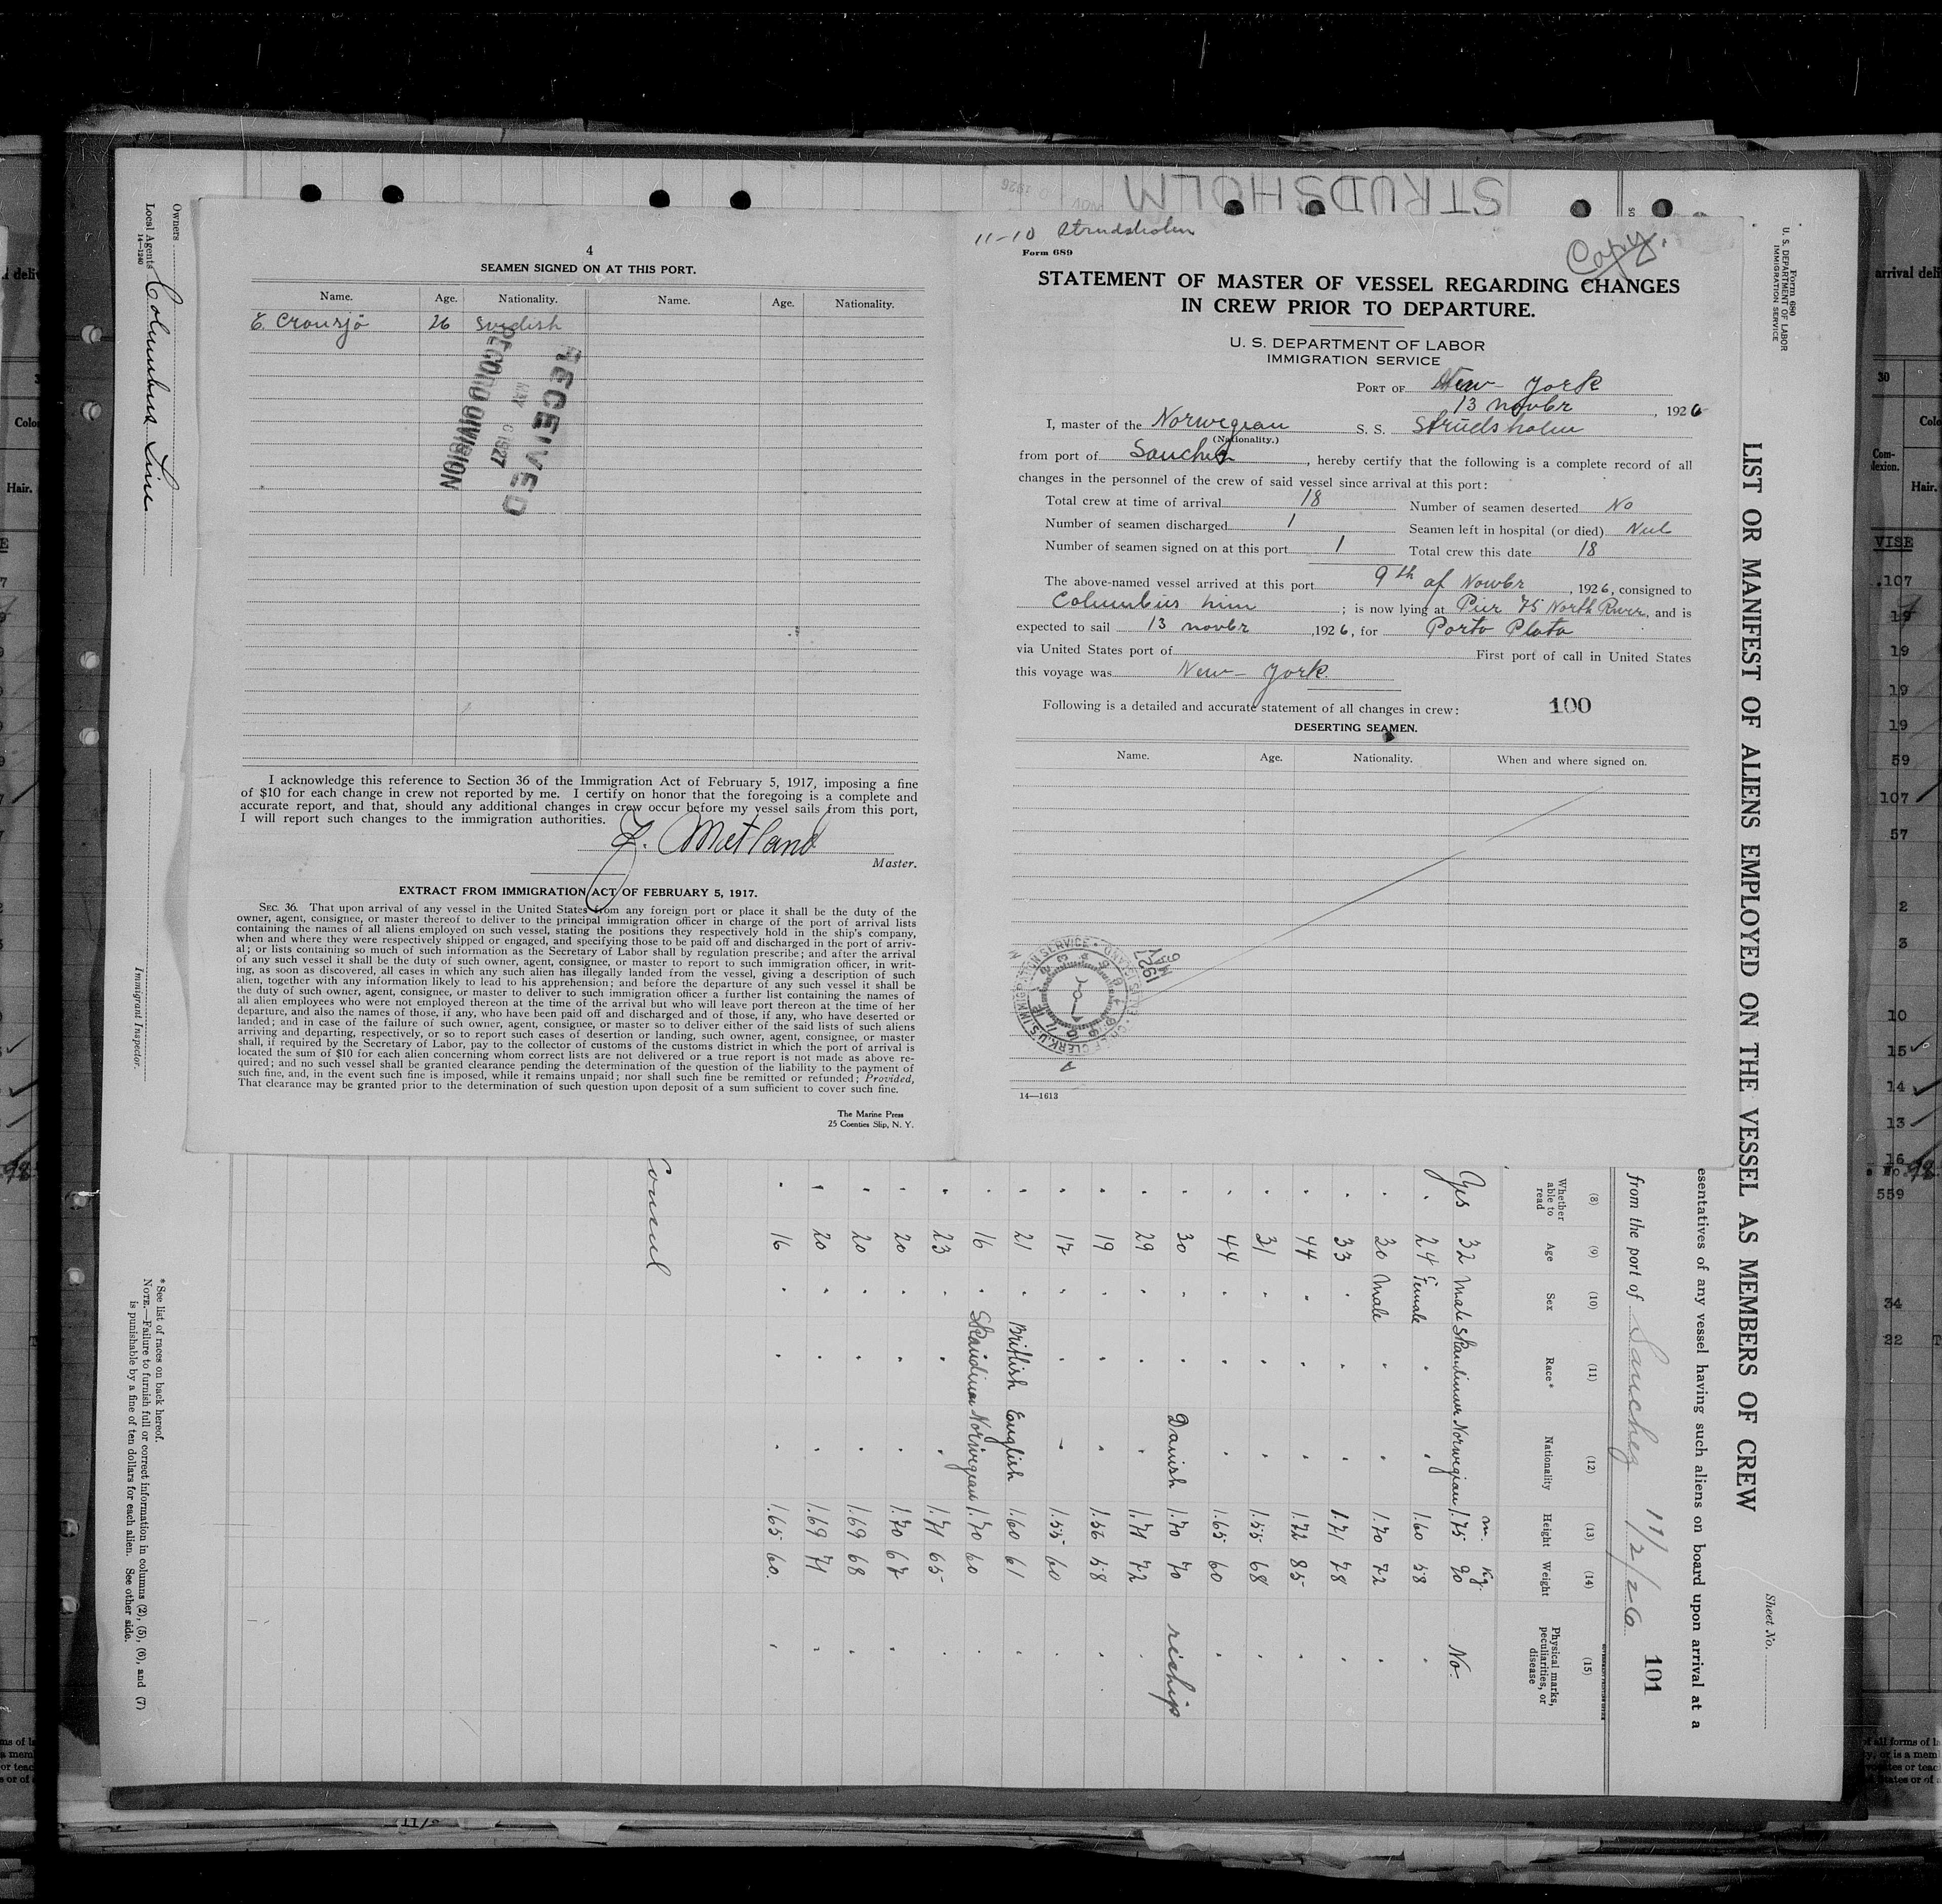 STRUDSHOLM
11-10 Strudsholm
Copy.
4
SEAMEN SIGNED ON AT THIS PORT.
Name. Age. Nationality. Name. Age. Nationality.
26 Swedish
RECEIVED
MAY 1927
RECORD DIVISION
I acknowledge this reference to Section 36 of the Immigration Act of February 5, 1917, imposing a fine
of $10 for each change in crew not reported by me. I certify on honor that the foregoing is a complete and
accurate report, and that, should any additional changes in crew occur before my vessel sails from this port,
I will report such changes to the immigration authorities.
Master.
EXTRACT FROM IMMIGRATION ACT OF FEBRUARY 5, 1917.
SEC. 36. That upon arrival of any vessel in the United States from any foreign port or place it shall be the duty of the
owner, agent, consignee, or master thereof to deliver to the principal immigration officer in charge of the port of arrival lists
containing the names of all aliens employed on such vessel, stating the positions they respectively hold in the ship's company,
when and where they were respectively shipped or engaged, and specifying those to be paid off and discharged in the port of arriv-
al; or lists containing so much of such information as the Secretary of Labor shall by regulation prescribe; and after the arrival
of any such vessel it shall be the duty of such owner, agent, consignee, or master to report to such immigration officer, in writ-
ing, as soon as discovered, all cases in which any such alien has illegally landed from the vessel, giving a description of such
alien, together with any information likely to lead to his apprehension; and before the departure of any such vessel it shall be
the duty of such owner, agent, consignee, or master to deliver to such immigration officer a further list containing the names of
all alien employees who were not employed thereon at the time of the arrival but who will leave port thereon at the time of her
departure, and also the names of those, if any, who have been paid off and discharged and of those, if any, who have deserted or
landed; and in case of the failure of such owner, agent, consignee, or master so to deliver either of the said lists of such aliens
arriving and departing, respectively, or so to report such cases of desertion or landing, such owner, agent, consignee, or master
shall, if required by the Secretary of Labor, pay to the collector of customs of the customs district in which the port of arrival is
located the sum of $10 for each alien concerning whom correct lists are not delivered or a true report is not made as above re-
quired; and no such vessel shall be granted clearance pending the determination of the question of the liability to the payment of
such fine, and, in the event such fine is imposed, while it remains unpaid; nor shall such fine be remitted or refunded; Provided,
That clearance may be granted prior to the determination of such question upon deposit of a sum sufficient to cover such fine.
The Marine Press
25 Coenties Slip, N. Y.
Form 689
STATEMENT OF MASTER OF VESSEL REGARDING CHANGES
IN CREW PRIOR TO DEPARTURE.
U. S. DEPARTMENT OF LABOR
IMMIGRATION SERVICE
PORT OF New-York
13 novbr, 1926
I, master of the Norwegian S. S. Strudsholm
(Nationality.)
from port of Sanchez, hereby certify that the following is a complete record of all
changes in the personnel of the crew of said vessel since arrival at this port:
Total crew at time of arrival 18 Number of seamen deserted No
Number of seamen discharged 1 Seamen left in hospital (or died)
Number of seamen signed on at this port 1 Total crew this date 18
The above-named vessel arrived at this port 9th of Novbr, 1926, consigned to
Columbus ; is now lying at Pier 75 North River, and is
expected to sail 13 novbr, 1926, for Porto Plata
via United States port of First port of call in United States
this voyage was New-York.
Following is a detailed and accurate statement of all changes in crew: 100
DESERTING SEAMEN.
Name. Age. Nationality. When and where signed on.
MAY
1927
14—1613
Form 680
U. S. DEPARTMENT OF LABOR
IMMIGRATION SERVICE
Sheet No.
LIST OR MANIFEST OF ALIENS EMPLOYED ON THE VESSEL AS MEMBERS OF CREW
esentatives of any vessel having such aliens on board upon arrival at a
from the port of Sanchez 11/2/26 101
(8) (9) (10) (11) (12) (13) (14) (15)
Whether able to read Age Sex Race* Nationality Height Weight Physical marks, peculiarities, or disease
m. Kg.
Yes 32 Male Norwegian 1.75 90 No.
" 24 Female " " 1.60 58 "
" 30 Male " " 1.70 72 "
" 33 " " " 1.71 78 "
" 44 " " " 1.72 85 "
" 31 " " " 1.55 68 "
" 44 " " " 1.65 60 "
" 30 " " Danish 1.70 70 reships
" 29 " " " 1.71 72 "
" 19 " " " 1.56 58 "
" 17 " " " 1.55 60 "
" 21 " British English 1.60 61 "
" 16 " Norwegian 1.70 60 "
" 23 " " " 1.71 65 "
" 20 " " " 1.70 67 "
" 20 " " " 1.69 68 "
" 20 " " " 1.69 71 "
" 16 " " " 1.65 60. "
Owners
Local Agents Columbus Line
14—1240
Immigrant Inspector.
* See list of races on back hereof.
NOTE.—Failure to furnish full or correct information in columns (2), (5), (6), and (7)
is punishable by a fine of ten dollars for each alien. See other side.